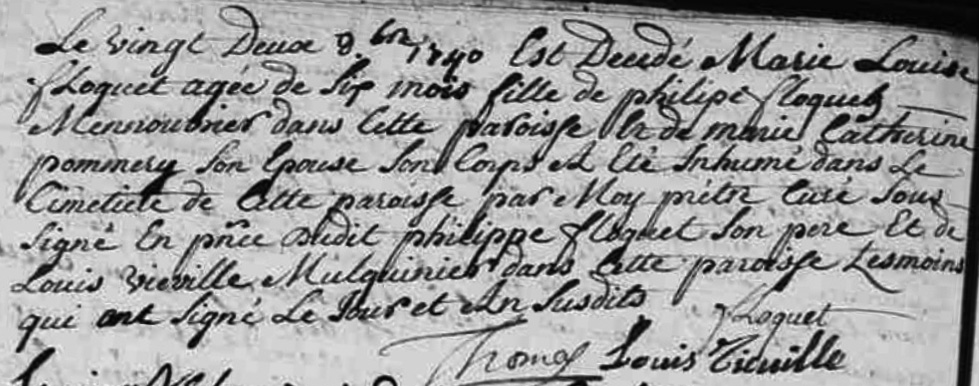 Le vingt Deux 8.bre 1740 Est Decedé Marie Louise
floquet agée de Six mois fille de philipe floquet
Mennouvrier dans Cette paroisse Et de marie Catherine
pommery Son Epouse Son Corps A Eté Inhumé dans Le
Cimetiere de Cette paroisse par Moy prêtre Curé Sous-
Signé En pñce dudit philippe floquet Son pere Et de
Louis vieville Mulquinier dans Cette paroisse tesmoins
qui ont Signé Le Jour et An Susdits
floquet
Thomas Louis Vieuille